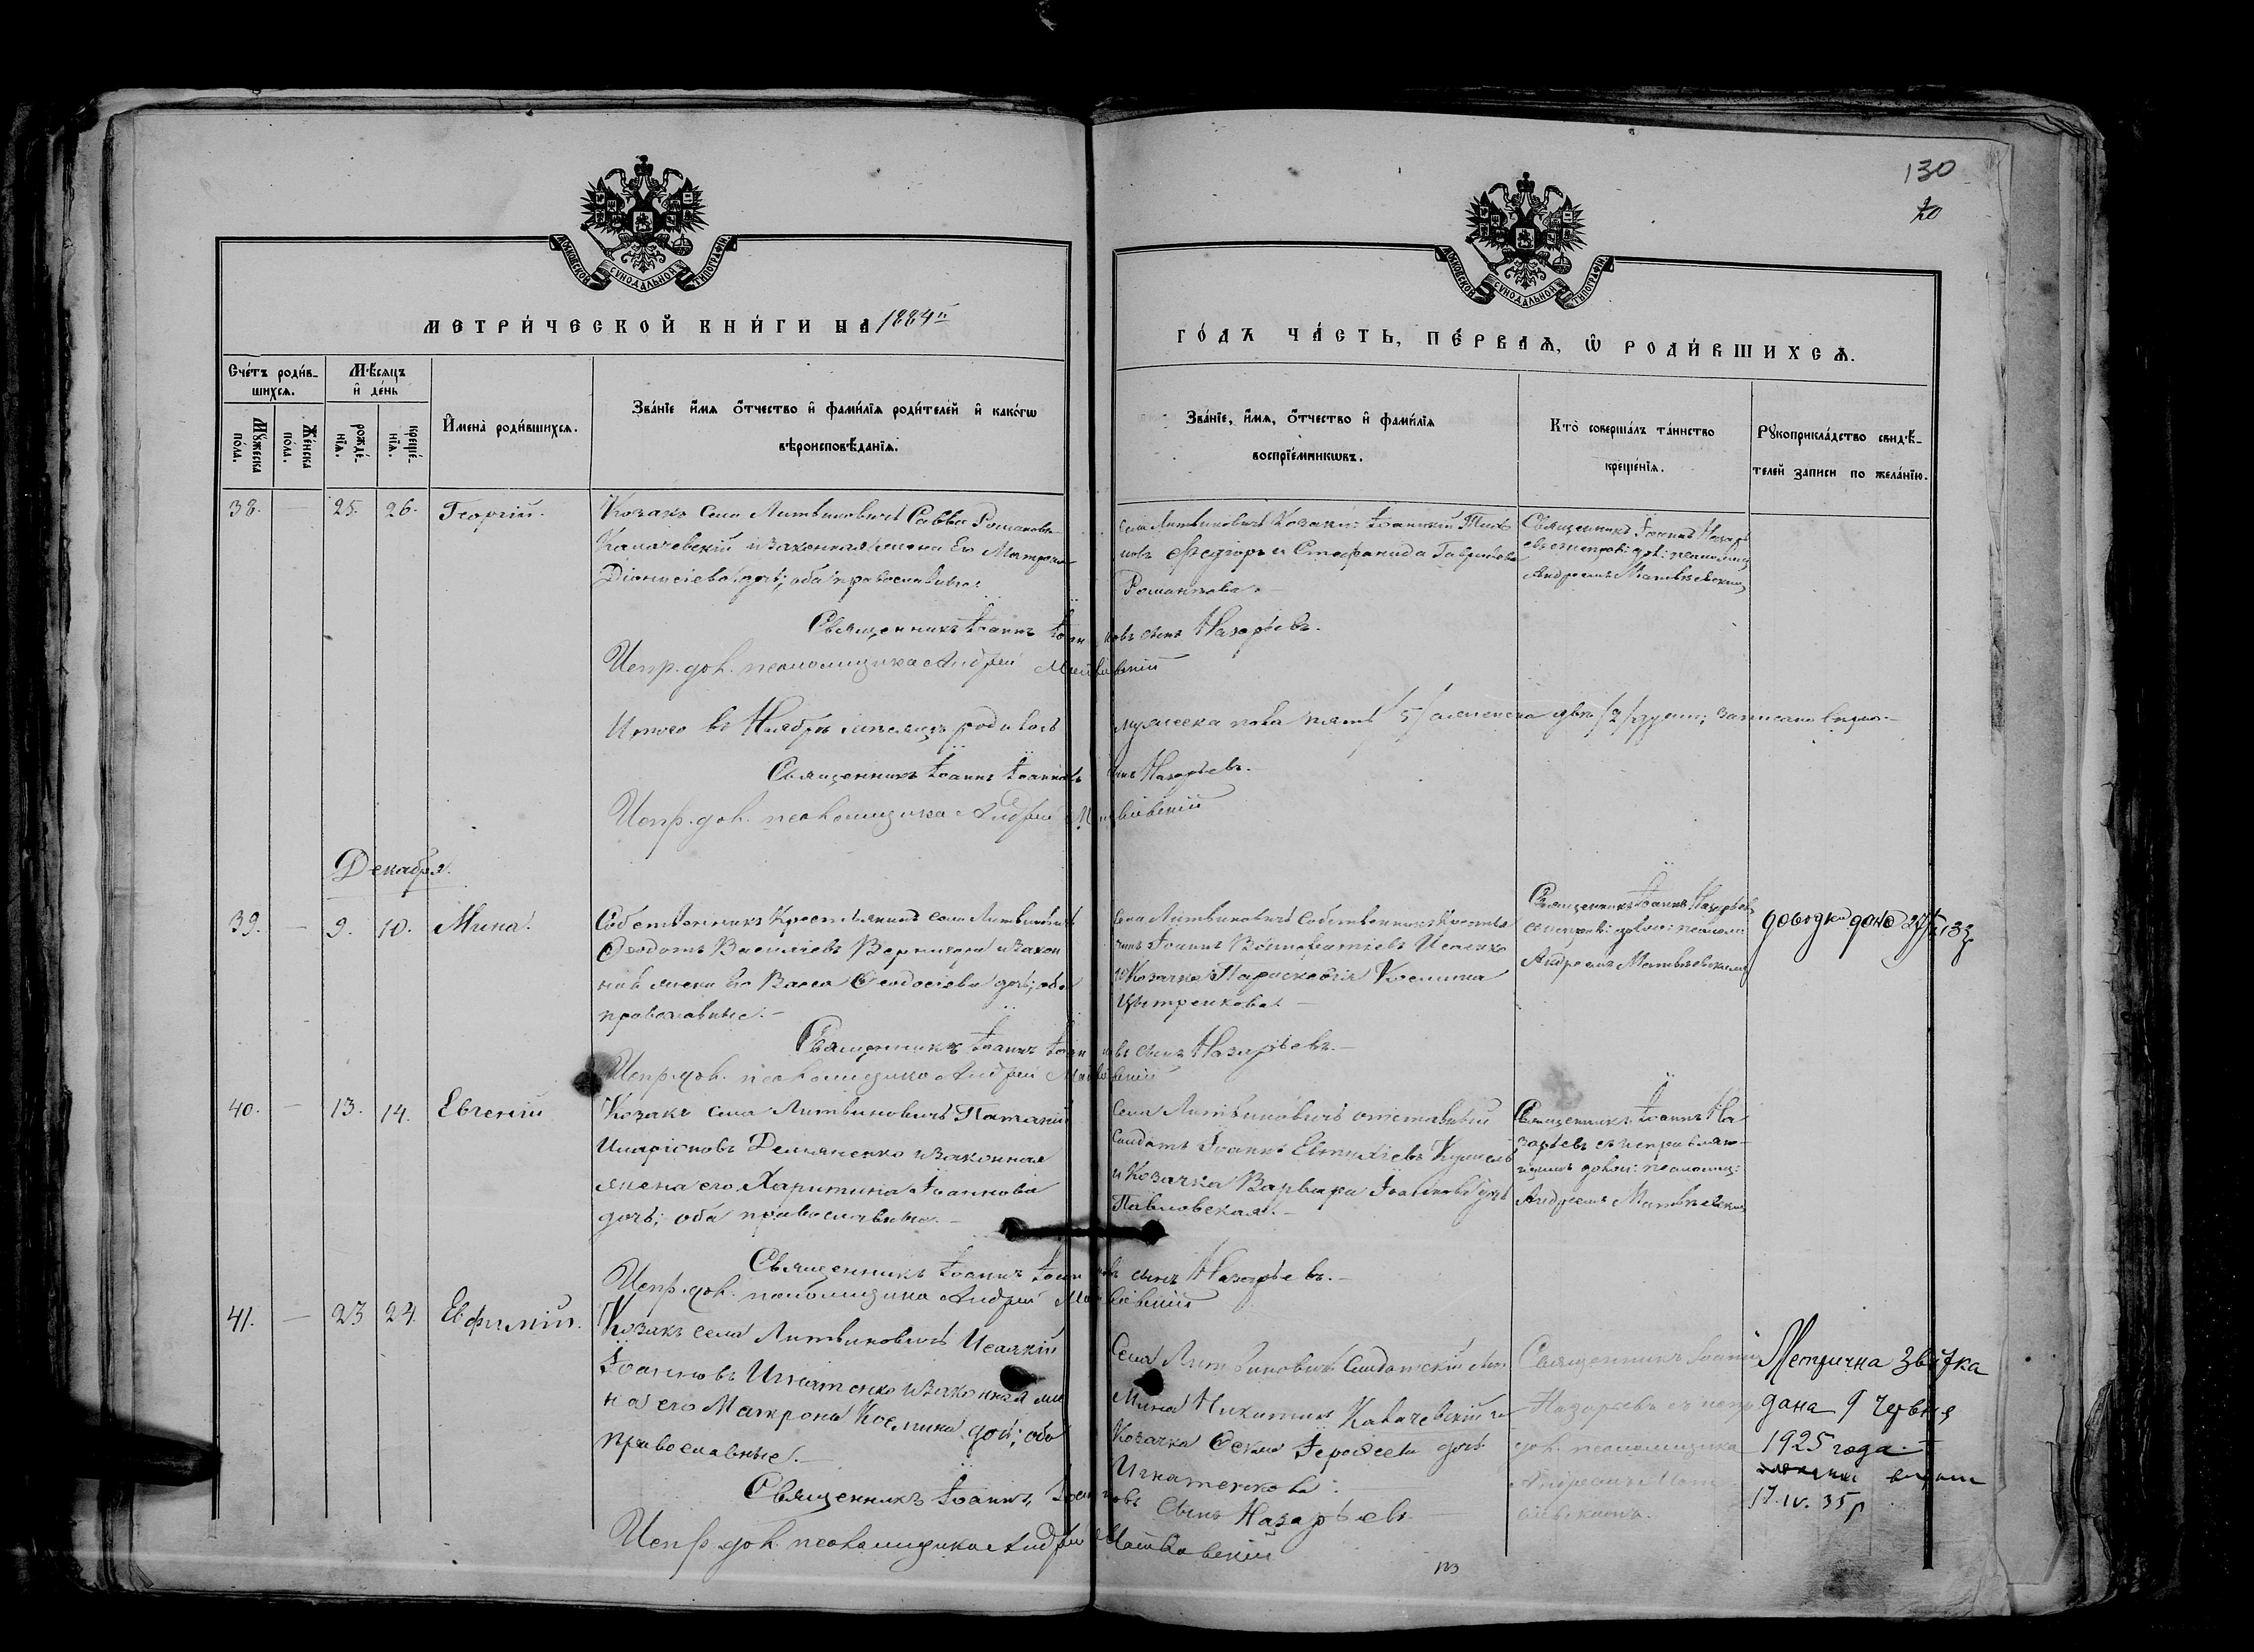 130
20
МОСКОВСКОЙ СѴНОДАЛЬНОЙ ТИПОГРАФІИ
МОСКОВСКОЙ СѴНОДАЛЬНОЙ ТИПОГРАФІИ
МЕТРИ́ЧЕСКОЙ КНИ́ГИ НА 1884й
ГО́ДЪ ЧА́СТЬ, ПЕ́РВАѦ, Ѽ РОДИ́ВШИХСѦ.
Сче́тъ роди́в-
шихсѧ.
Мꙋ́жеска
по́ла.
Же́нска
по́ла.
Мѣ́сѧцъ
и҆ де́нь
рожде́-
нїѧ.
креще́-
нїѧ.
И҆мена̀ роди́вшихсѧ.
Зва́нїе и҆́мѧ ѻ҆́тчество и҆ фами́лїѧ роди́телей и҆ како́гѡ
вѣроисповѣ́данїѧ.
Зва́нїе, и҆́мѧ, ѻ҆́тчество и҆ фами́лїѧ
воспрїе́мникѡвъ.
Кто̀ соверша́лъ та́инство
креще́нїѧ.
Рꙋкоприкла́дство свидѣ́-
телей записи по жела́нїю.
38. — 25. 26. Георгій.
Козакъ села Литвиновичъ Савва Романовъ
Калачевскій и законная жена его Матрона
Діонисіева дочь; оба православные.
Села Литвиновичъ Козаки: Іоанникій
Федоръ и Стефанида Гаврилова
Романкова.
Священникъ Іоаннъ Назарь
евъ съ исправ: дол: псаломщ
Андреемъ Матвѣевскимъ
Священникъ Іоаннъ Іоанновъ сынъ Назарьевъ.
Испр. дол. псаломщика Андрей Матвіевскій
Итого въ Ноябрѣ мѣсяцѣ родилось мужеска пола пять /5/ а женска два /2/ души; записаны вѣрно.
Священникъ Іоаннъ Іоанновъ сынъ Назарьевъ.
Испр. дол. псаломщика Андрей Матвіевскій
Декабря.
39. — 9. 10. Мина.
Собственникъ Крестьянинъ села Литвиновичъ
Феодотъ Василіевъ и закон
ная жена его Васса Феодосіева дочь; оба
православные.
Села Литвиновичъ Собственникъ Крестья
нинъ Іоаннъ Исаенко
и Козачка Параскевія Космина
Священникъ Іоаннъ Назарьевъ
Андреемъ Матвѣевскимъ
Священникъ Іоаннъ Іоанновъ сынъ Назарьевъ.
Испр. дол. псаломщика Андрей Матвіевскій
40. — 13. 14. Евгеній
Козакъ села Литвиновичъ Патапій
Иларіоновъ Демяненко и законная
жена его Харитина Іоаннова
дочь; оба православные.
Села Литвиновичъ отставный
Солдатъ Іоаннъ Евтихіевъ
и Козачка Варвара Іоаннова дочь
Павловская.
Священникъ Іоаннъ На
зарьевъ съ исправляю-
щимъ долж: псаломщ:
Андреемъ Матвѣевскимъ
Священникъ Іоаннъ Іоанновъ сынъ Назарьевъ.
Испр. дол. псаломщика Андрей Матвіевскій
41. — 23 24. Евфимій.
Козакъ села Литвиновичъ Исаакій
Іоанновъ Игнатенко и законная же
на его Матрона Космина доч; оба
православные.
Села Литвиновичъ Солдатскій
Мина Никитинъ Калачевскій и
Козачка Фекла дочь
Игнатенкова.
Священникъ Іоаннъ
Назарьевъ съ испр
дол. псаломщика
Метрична звістка
дана 9 червня
1925 года.
17. IV. 35 р
Священникъ Іоаннъ Іоанновъ сынъ Назарьевъ
Испр. дол. псаломщика Андрей Матвіевскій